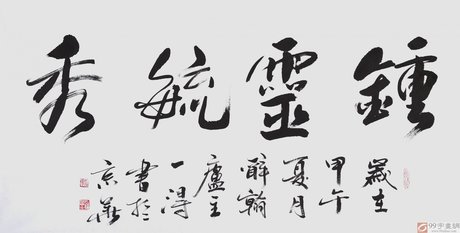 鍾靈毓秀
歲在
甲午
夏月
醉翰
廬主
一得
書於
京華
99字畫網